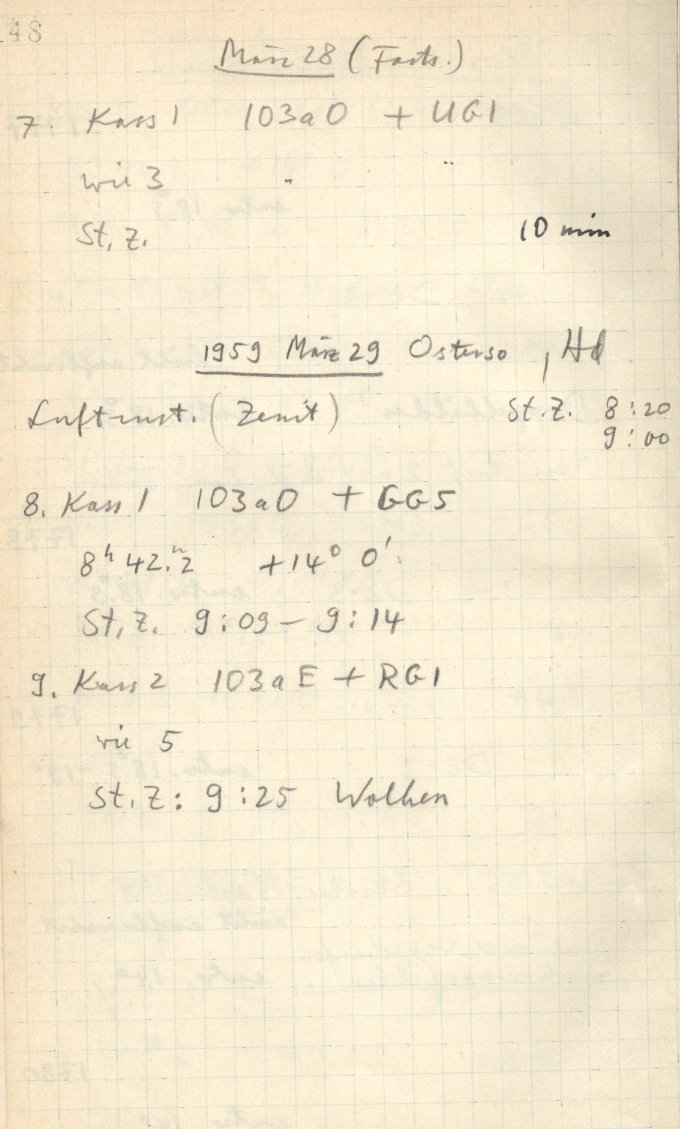 48
März 28 (Forts.)
7. Kass 1 103aO + UG1
wie 3 " "
St. Z. 10 min
1959 März 29 Osterso, Hd
Luftunst. (Zenit) St. Z. 8:20
9:00
8. Kass 1 103aO + GG5
8h 42.m2 +14° 0'
St. Z. 9:09 – 9:14
9. Kass 2 103aE + RG1
wie 5
St. Z: 9:25 Wolken